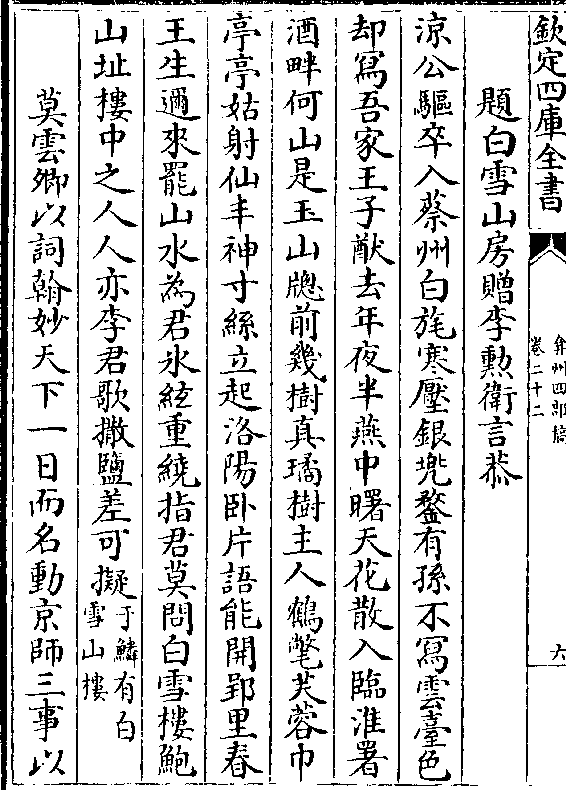 欽定四庫全書
弇州四部稿
卷二十二
六
題白雪山房贈李勲衛言恭
涼公驅卒入蔡州白旄寒壓銀兠鍪有孫不寫雲臺色
却寫吾家王子猷去年夜半燕中曙天花散入臨淮署
酒畔何山是玉山牕前幾樹真璚樹主人鶴氅芙蓉巾
亭亭姑射仙丰神寸絲立起洛陽卧片語能開郢里春
王生邇來罷山水為君氷絃重繞指君莫問白雪樓鮑
山址樓中之人人亦李君歌撒鹽差可擬于鱗有白
雪山樓
莫雲卿以詞翰妙天下一日而名動京師三事以